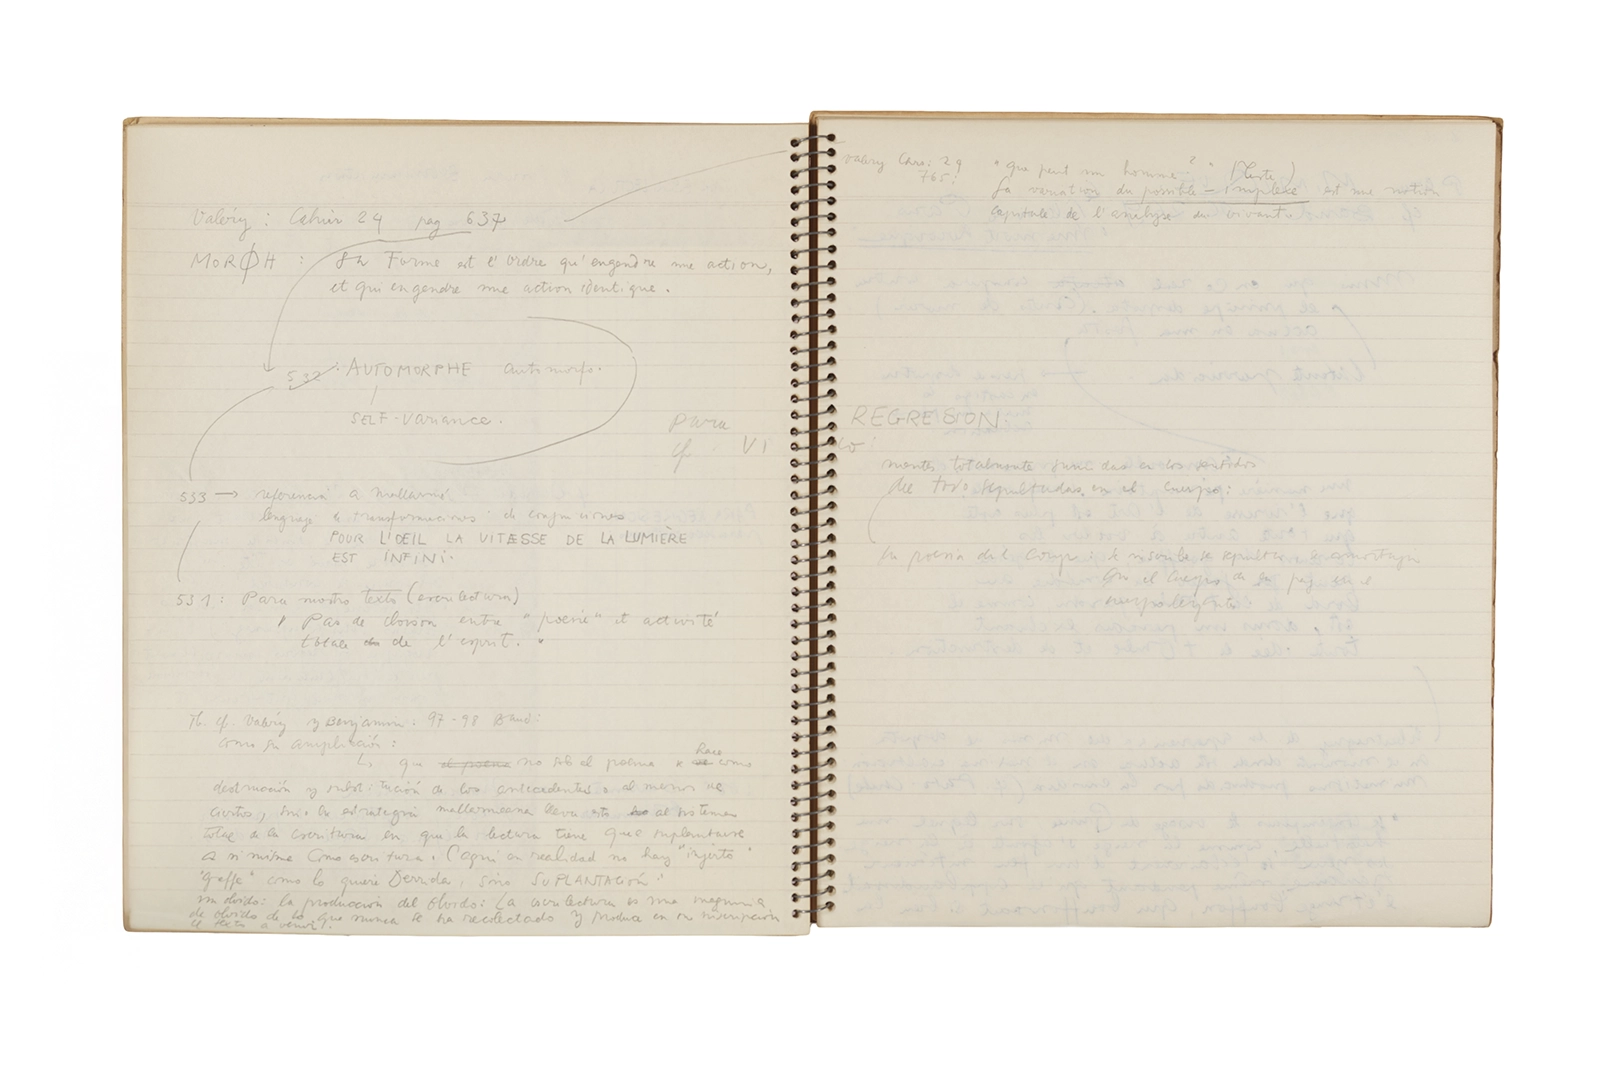 Valéry : Cahier 29 pag 637
MORØH : La Forme est l'ordre qu'engendre une action,
et qui engendre une action identique.
532 AUTOMORPHE automorfo.
SELF-Variance.
Para
cf. VI
533 → referencia a Mallarmé
lenguaje de transformaciones: de conjunciones
POUR L'OEIL LA VITESSE DE LA LUMIÈRE
EST INFINI.
531 : Para nostro texto (escrilectura)
" Pas de cloison entre "poésie" et activité
totale de de l'esprit. "
Th. cf. Valéry y Benjamin: 97-98 Baud:
como su amplición:
Ls que el poema no sólo el poema x Race como
destrucción y substitución de los antecedentes o al menos de
ciertos, sino la estrategia mallarmeana lleva esto al sistema
total de la escritura en que la lectura tiene que suplantarse
a si misma como escritura. (aquí en realidad no hay "injerto"
"greffe" como lo quiere Derrida, sino SUPLANTACIÓN"
un olvido: la producción del olvido: La escrilectura es una maquina
de olvido de lo que nunca se ha recolectado y produce en su inscripción
el texto a venir).
Valéry Cahi: 29
765:
"Que peut un homme?" (Teste)
La variation du possible – implexe est une notion
capitale de l'analyse du vivant
REGRESION:
mentes totalmente fundidas en los sentidos
de todo sepultadas en el cuerpo:
La poesía del Coup: se sepulta, se amortaja
con el cuerpo de la